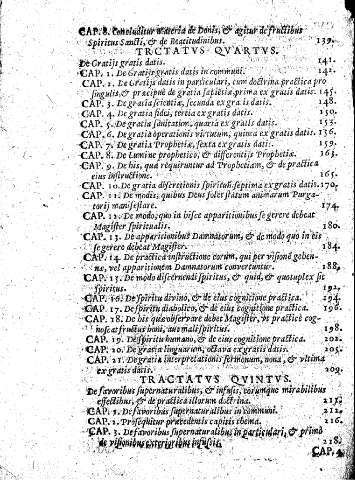 CAP. 8. Concluditur materia de Donis, & agitur de fructibus
Spiritus Sancti, & de Beatitudinibus. 139.
TRCTATVS QVARTVS.
De Gratijs gratis datis. 141.
CAP. 1. De Gratijs gratis datis in communi. 142.
CAP. 2. De Gratijs datis in particulari, cum doctrina practica pro
singulis, & præcipuè de gratia sapiētiæ, prima ex gratis datis. 145.
CAP. 3. De gratia scientiæ, secunda ex gratis datis. 148.
CAP. 4. De gratia fidei, tertia ex gratis datis. 150.
CAP. 5. De gratia sanitatum, quarta ex gratis datis. 153.
CAP. 6. De gratia operationis virtutum, quinta ex gratis datis. 156.
CAP. 7. De gratia Prophetiæ, sexta ex gratis datis. 159.
CAP. 8. De Lumine prophetico, & differentijs Prophetiæ. 163.
CAP. 9. De his, quæ requiruntur ad Prophetiam, & de practica
eius instructione. 165.
CAP. 10. De gratia discretionis spirituū, septima ex gratis datis. 170.
CAP. 11. De modis, quibus Deus solet statum animarum Purga-
torij manifestare. 174.
CAP. 12. De modo, quo in bisce apparitionibus se gerere debeat
Magister spiritualis. 180.
CAP. 13. De apparitionibus Damnatorum, & de modo quo in eis
se gerere debeat Magister. 184.
CAP. 14. De practica instructione eorum, qui per visionē gehen-
næ, vel apparitionem Damnatorum convertuntur. 188.
CAP. 15. De modo discernendi spiritus, & quid, & quotuplex sit
spiritus. 192.
CAP. 16. De Spiritu divino, & de eius cognitione practica. 194.
CAP. 17. De spiritu diabolico, & de eius cognitione practica. 196.
CAP. 18. De his quæ observare debet Magister, vt practicè cog-
noscat fructus boni, aut mali spiritus. 198.
CAP. 19. De spiritu humano, & de eius cognitione practica. 202.
CAP. 20. De gratia linguarum, octava ex gratis datis. 205.
CAP. 21. De gratia interpretationis sermonum, nona, & vltima
ex gratis datis. 209.
TRACTATVS QVINTVS.
De favoribus supernaturalibus, & infusis, eorumque mirabilibus
effectibus, & de practica illorum doctrina. 212.
CAP. 1. De favoribus supernaturalibus in communi. 212.
CAP. 2. Prosequitur præcedentis capitis thema. 216.
CAP. 3. De favoribus supernaturalibus in particulari, & primò
de visionibus exterioribus infusis. 218.
CAP. 4.